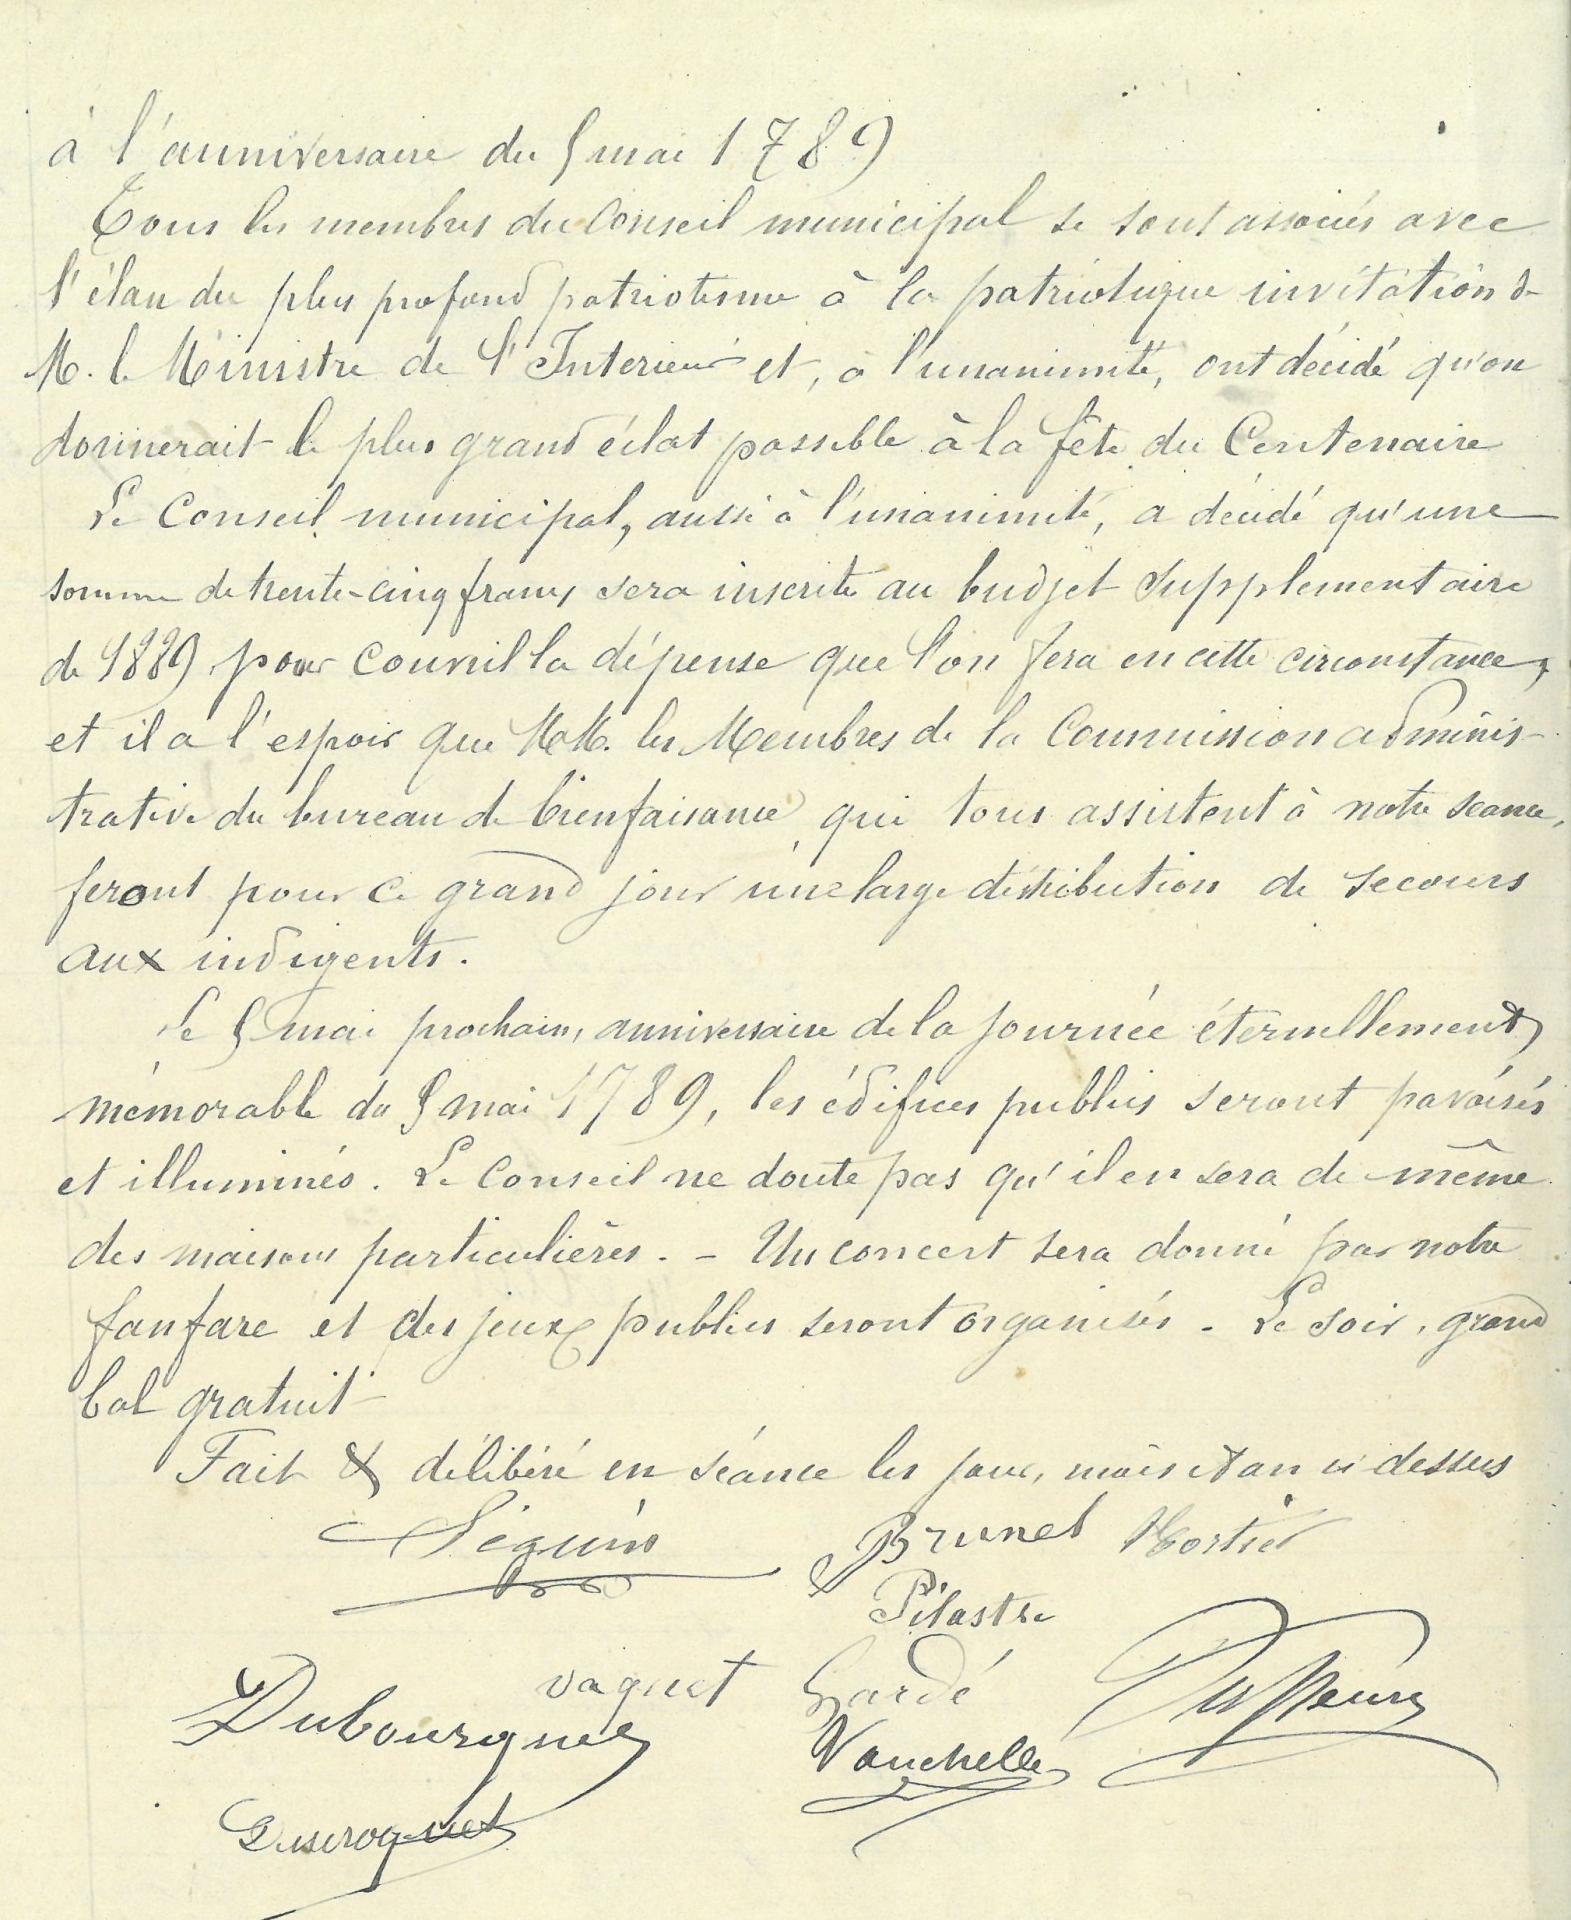 à l'anniversaire du 5 mai 1789
Tous les membres du Conseil municipal se sont associés avec
l'élan du plus profond patriotisme à la patriotique invitation de
M. le Ministre de l'Interieur et, à l'unanimité, ont décidé qu'on
donnerait le plus grand éclat possible à la fête du Centenaire
Le Conseil municipal, aussi à l'unanimité, a décidé qu'une
somme de trente-cinq francs sera inscrite au budget supplementaire
de 1889 pour couvrir la dépense que l'on fera en cette circonstance,
et il a l'espoir que MM. les Membres de la Commission adminis-
trative du bureau de bienfaisance, qui tous assistent à notre séance,
feront pour ce grand jour une large distribution de secours
aux indigents.
Le 5 mai prochain, anniversaire de la journée éternellement
mémorable du 5 mai 1789, les édifices publics seront pavoisés
et illuminés. Le Conseil ne doute pas qu'il en sera de même
des maisons particulières. - Un concert sera donné par notre
fanfare et des jeux publics seront organisés - Le soir, grand
bal gratuit
Fait & délibéré en séance les jour, mois et an ci dessus
Séguin Brunet Mortier
Pilastre
Vaquet Gardé
Dubourguel Vauchelle